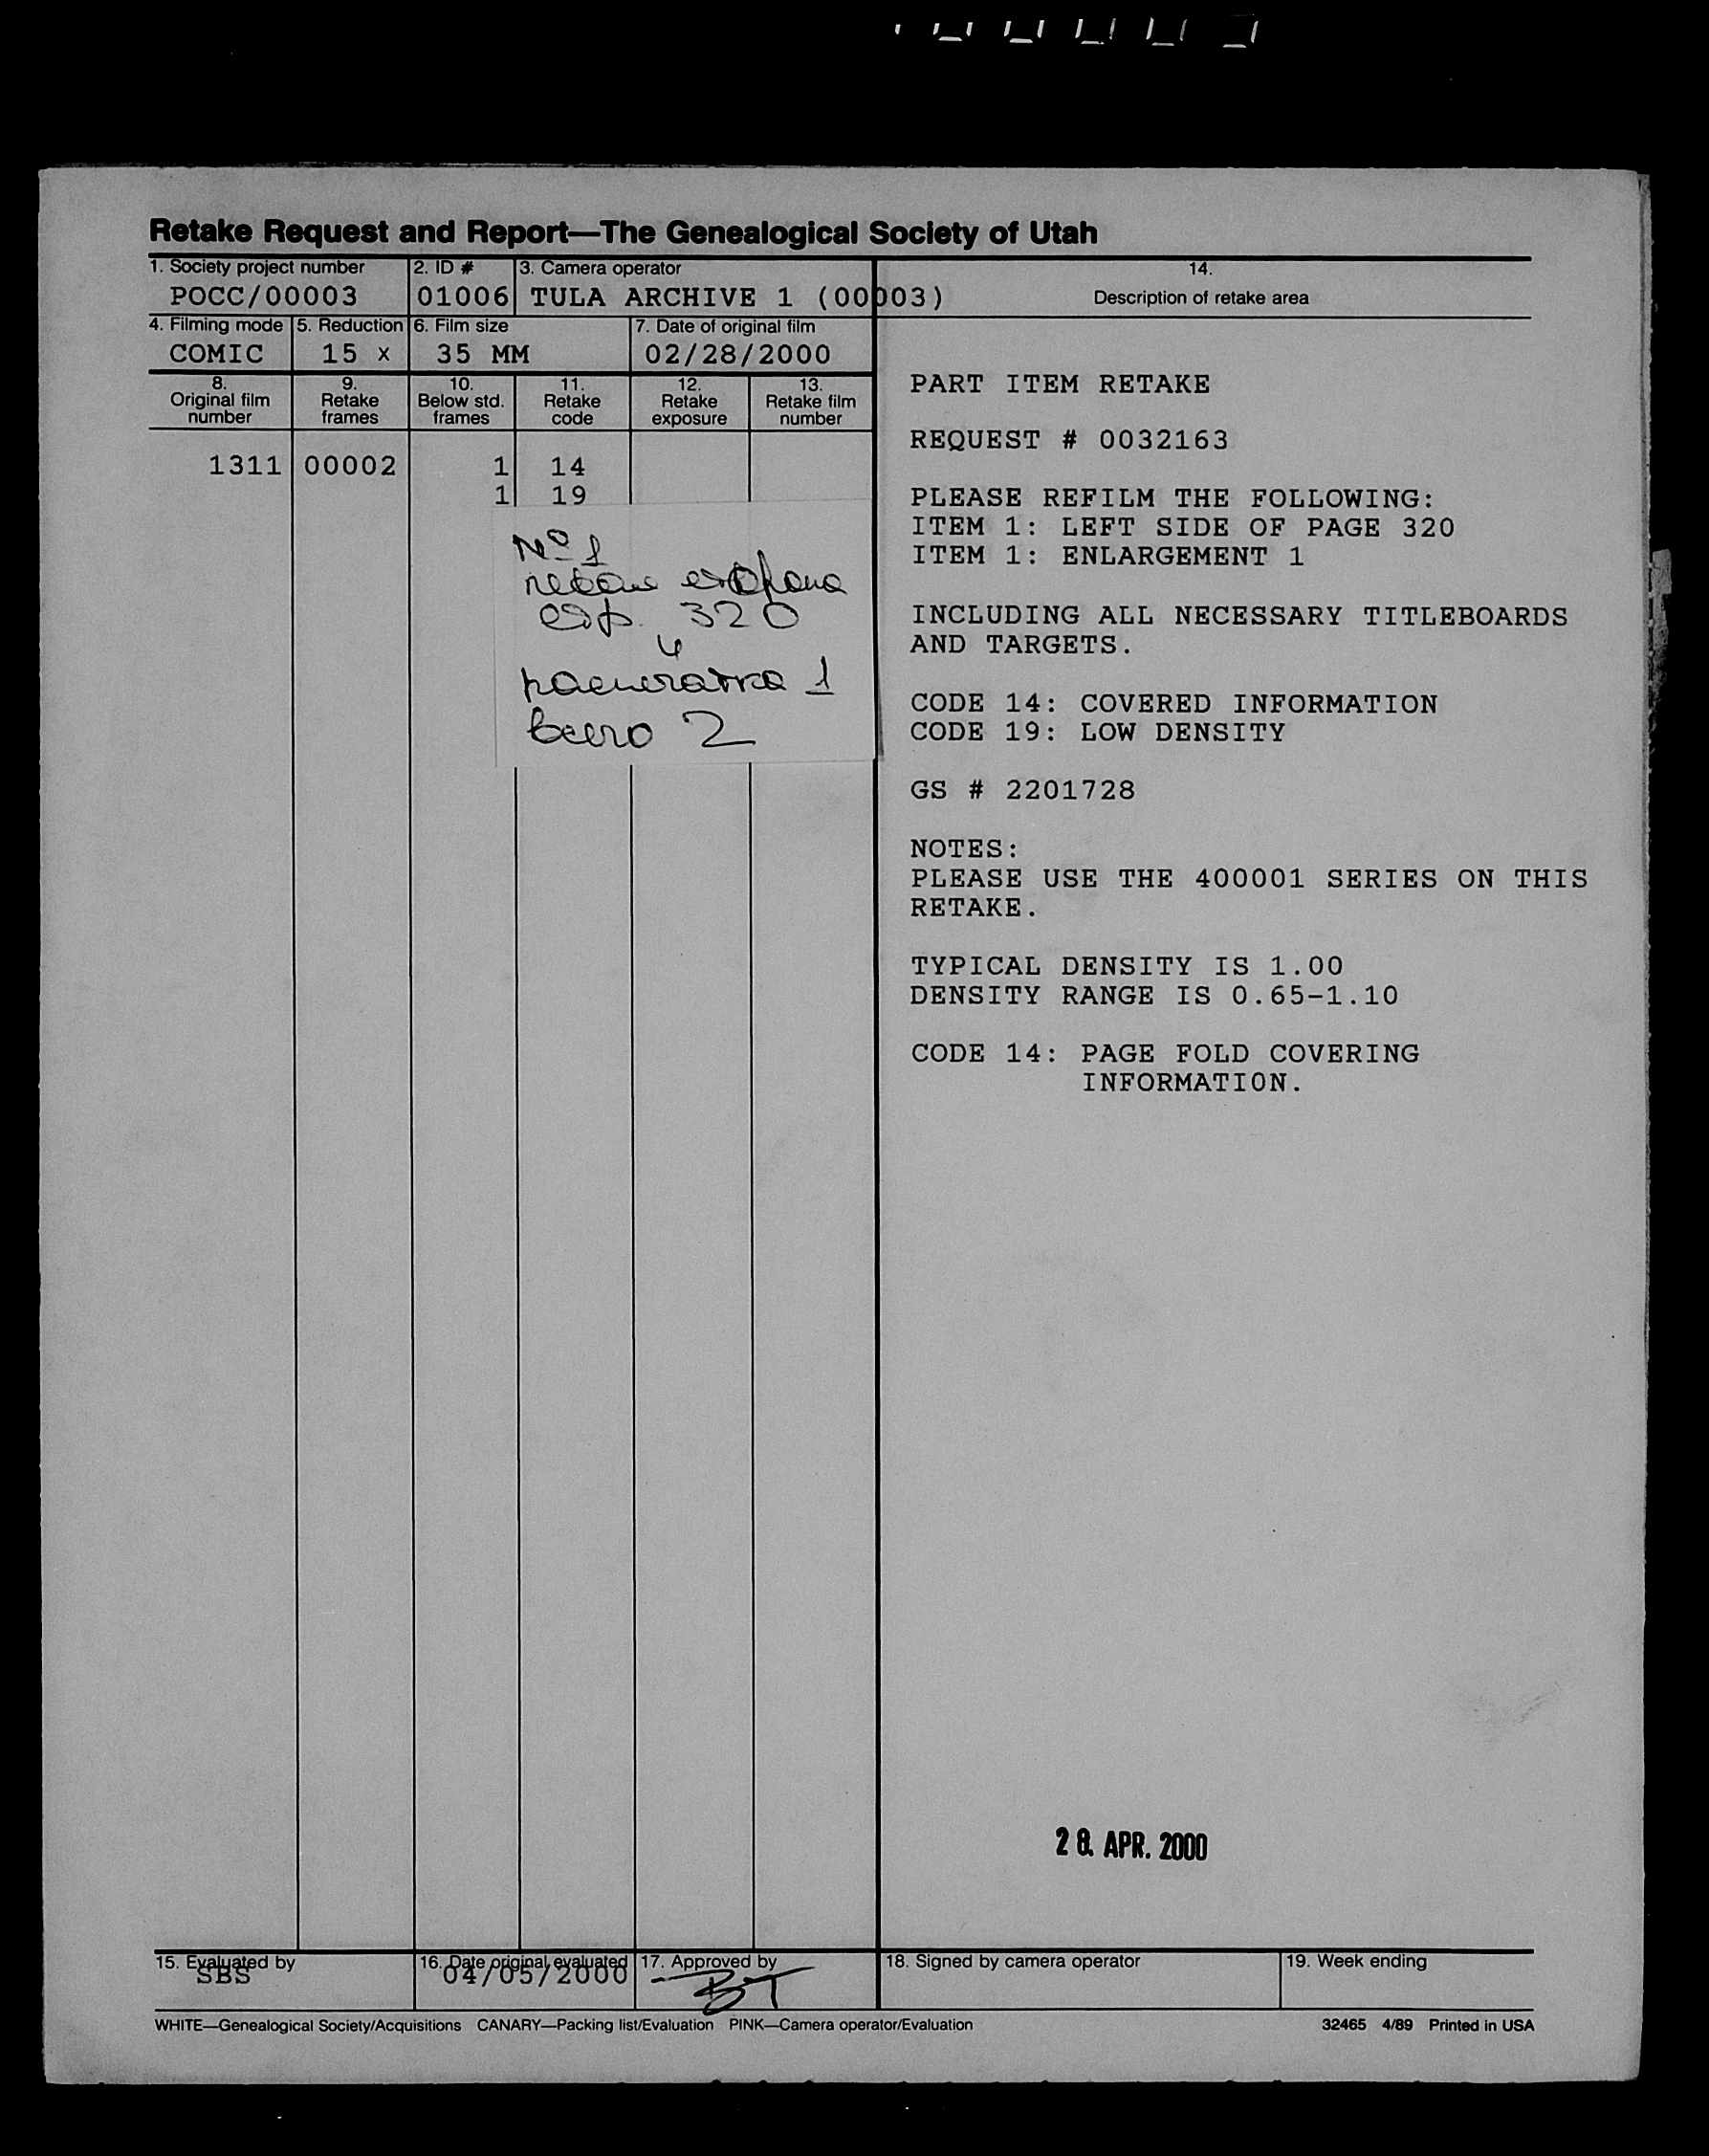 Retake Request and Report—The Genealogical Society of Utah
1. Society project number
POCC/00003
2. ID #
01006
3. Camera operator
TULA ARCHIVE 1 (00003)
14.
Description of retake area
4. Filming mode
COMIC
5. Reduction
15 x
6. Film size
35 MM
7. Date of original film
02/28/2000
8.
Original film
number
9.
Retake
frames
10.
Below std.
frames
11.
Retake
code
12.
Retake
exposure
13.
Retake film
number
1311 00002 1 14
1 19
№ 1
левая сторона
стр. 320
и
распечатка 1
всего 2
PART ITEM RETAKE
REQUEST # 0032163
PLEASE REFILM THE FOLLOWING:
ITEM 1: LEFT SIDE OF PAGE 320
ITEM 1: ENLARGEMENT 1
INCLUDING ALL NECESSARY TITLEBOARDS
AND TARGETS.
CODE 14: COVERED INFORMATION
CODE 19: LOW DENSITY
GS # 2201728
NOTES:
PLEASE USE THE 400001 SERIES ON THIS
RETAKE.
TYPICAL DENSITY IS 1.00
DENSITY RANGE IS 0.65-1.10
CODE 14: PAGE FOLD COVERING
INFORMATION.
28. APR. 2000
15. Evaluated by
SBS
16. Date original evaluated
04/05/2000
17. Approved by
BT
18. Signed by camera operator
19. Week ending
WHITE—Genealogical Society/Acquisitions CANARY—Packing list/Evaluation PINK—Camera operator/Evaluation
32465 4/89 Printed in USA